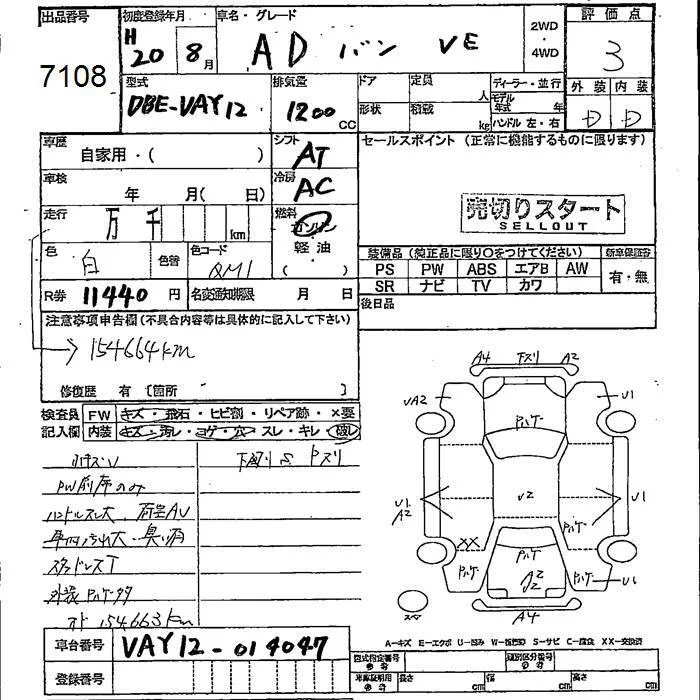 出品番号
7108
初度登録年月
H 20 8月
車名・グレード
AD バン VE
2WD
・
4WD
評価点
3
型式
DBE-VAY12
排気量
1200 CC
ドア
定員
人
ディーラー・並行
形状
積載
kg
モデル年式 年
ハンドル 左・右
外装 内装
D D
車歴
自家用・( )
シフト
AT
セールスポイント (正常に機能するものに限ります)
車検
年 月( 日)
冷房
AC
売切りスタート
SELLOUT
走行
万 千 km
燃料
ガソリン
軽油
( )
色
白
色替
色コード
QM1
装備品 (純正品に限り○をつけてください)
新車保証書
PS PW ABS エアB AW
有・無
SR ナビ TV カワ
R券 11440 円
名変通知期限 月 日
後日品
注意事項申告欄 (不具合内容等は具体的に記入して下さい)
→ 154664km
修復歴 有 [箇所 ]
検査員
記入欄
FW キズ・飛石・ヒビ割・リペア跡・×要
内装 キズ・汚レ・コゲ・穴・スレ・キレ・破レ
PW前席のみ
ハンドルスレ大
スタッドレスT
154663km
A4 下スリ A2
UA2
U1
U1
A2
U2
U1
XX
U1
A2
A4
スペア
A-キズ E-エクボ U-凹み W-板金跡 S-サビ C-腐食 XX-交換済
車台番号
VAY12-014047
登録番号
型式指定番号
参考
類別区分番号
参考
車庫証明用
参考
長さ cm
幅 cm
高さ cm